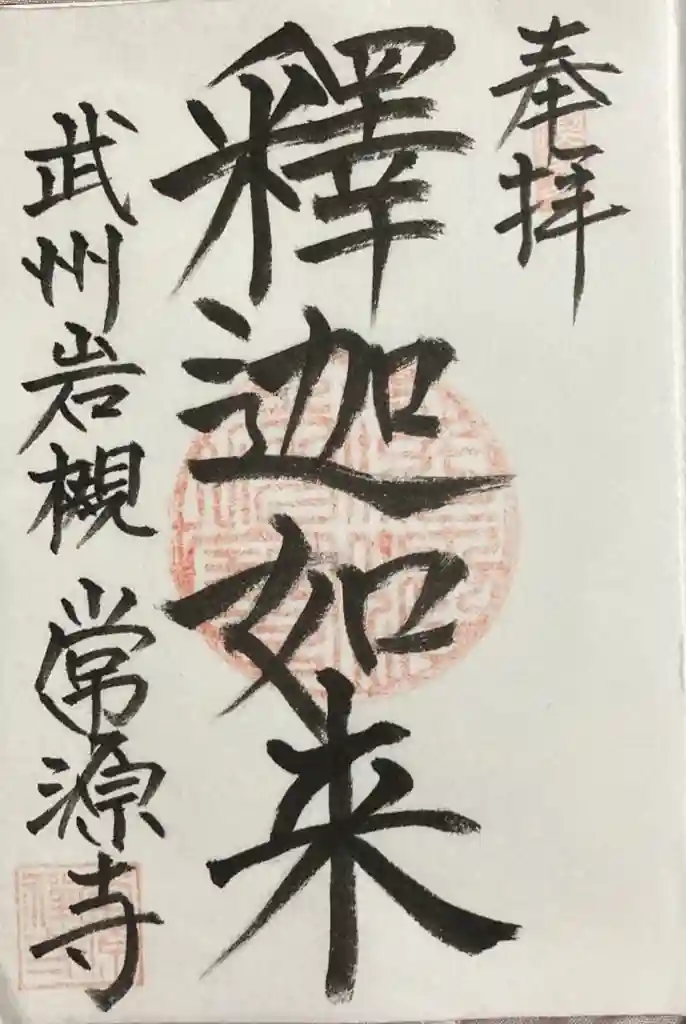 奉拝
釋迦如来
武州岩槻 常源寺